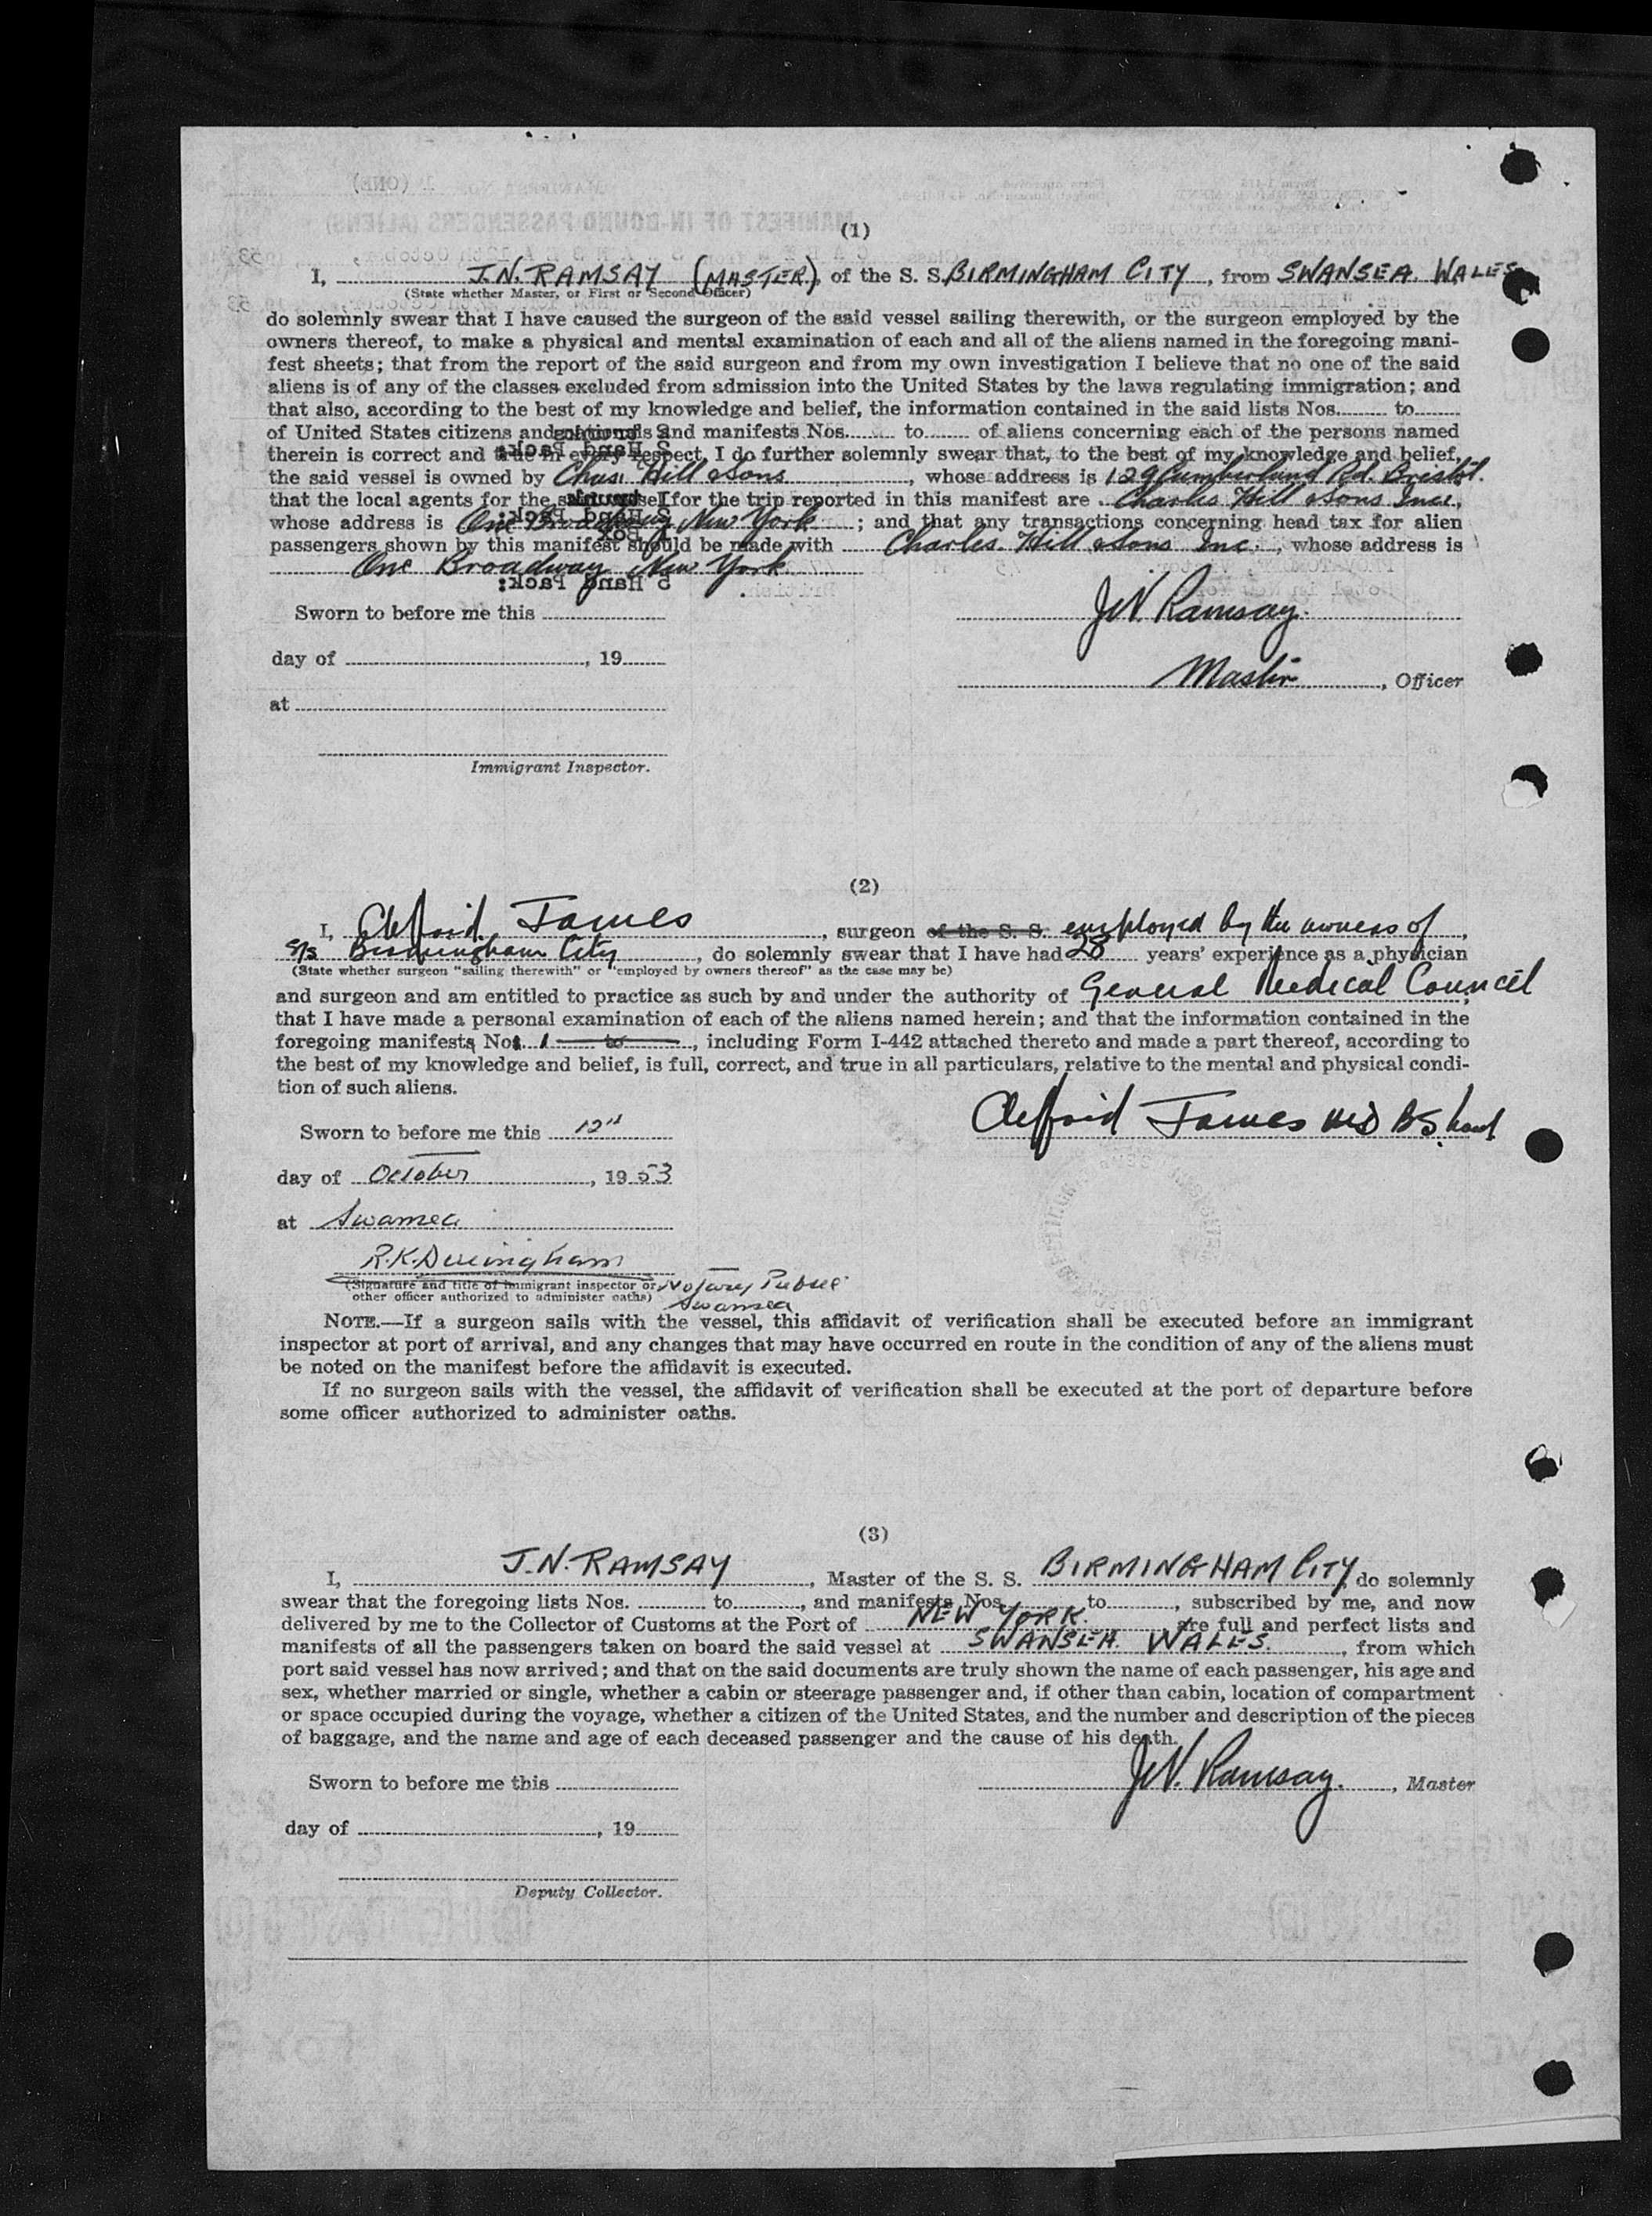 (1)
I, J.N. RAMSAY (MASTER), of the S. S. BIRMINGHAM CITY, from SWANSEA. WALES
(State whether Master, or First or Second Officer)
do solemnly swear that I have caused the surgeon of the said vessel sailing therewith, or the surgeon employed by the
owners thereof, to make a physical and mental examination of each and all of the aliens named in the foregoing mani-
fest sheets; that from the report of the said surgeon and from my own investigation I believe that no one of the said
aliens is of any of the classes excluded from admission into the United States by the laws regulating immigration; and
that also, according to the best of my knowledge and belief, the information contained in the said lists Nos. to
of United States citizens and nationals and manifests Nos. to of aliens concerning each of the persons named
therein is correct and true in every respect. I do further solemnly swear that, to the best of my knowledge and belief,
the said vessel is owned by Chas. Hill & Sons, whose address is 129 Cumberland Rd. Bristol.
that the local agents for the said vessel for the trip reported in this manifest are Charles Hill & Sons Inc.,
whose address is One Broadway New York; and that any transactions concerning head tax for alien
passengers shown by this manifest should be made with Charles Hill & Sons Inc., whose address is
One Broadway New York
Sworn to before me this
J.N. Ramsay.
day of , 19
Master, Officer
at
Immigrant Inspector.
(2)
I, James, surgeon of the S. S. employed by the owners of,
s/s Birmingham City, do solemnly swear that I have had 28 years' experience as a physician
(State whether surgeon "sailing therewith" or "employed by owners thereof" as the case may be)
and surgeon and am entitled to practice as such by and under the authority of General Medical Council,
that I have made a personal examination of each of the aliens named herein; and that the information contained in the
foregoing manifests No. 1 to , including Form I-442 attached thereto and made a part thereof, according to
the best of my knowledge and belief, is full, correct, and true in all particulars, relative to the mental and physical condi-
tion of such aliens.
James MD BS. Lond
Sworn to before me this 12th
day of October, 1953
at Swansea
R.K.
(Signature and title of immigrant inspector or Notary Public
other officer authorized to administer oaths) Swansea
NOTE.—If a surgeon sails with the vessel, this affidavit of verification shall be executed before an immigrant
inspector at port of arrival, and any changes that may have occurred en route in the condition of any of the aliens must
be noted on the manifest before the affidavit is executed.
If no surgeon sails with the vessel, the affidavit of verification shall be executed at the port of departure before
some officer authorized to administer oaths.
(3)
I, J.N. RAMSAY, Master of the S. S. BIRMINGHAM CITY, do solemnly
swear that the foregoing lists Nos. to , and manifests Nos. to , subscribed by me, and now
delivered by me to the Collector of Customs at the Port of NEW YORK. are full and perfect lists and
manifests of all the passengers taken on board the said vessel at SWANSEA. WALES., from which
port said vessel has now arrived; and that on the said documents are truly shown the name of each passenger, his age and
sex, whether married or single, whether a cabin or steerage passenger and, if other than cabin, location of compartment
or space occupied during the voyage, whether a citizen of the United States, and the number and description of the pieces
of baggage, and the name and age of each deceased passenger and the cause of his death.
Sworn to before me this
J.N. Ramsay., Master
day of , 19
Deputy Collector.